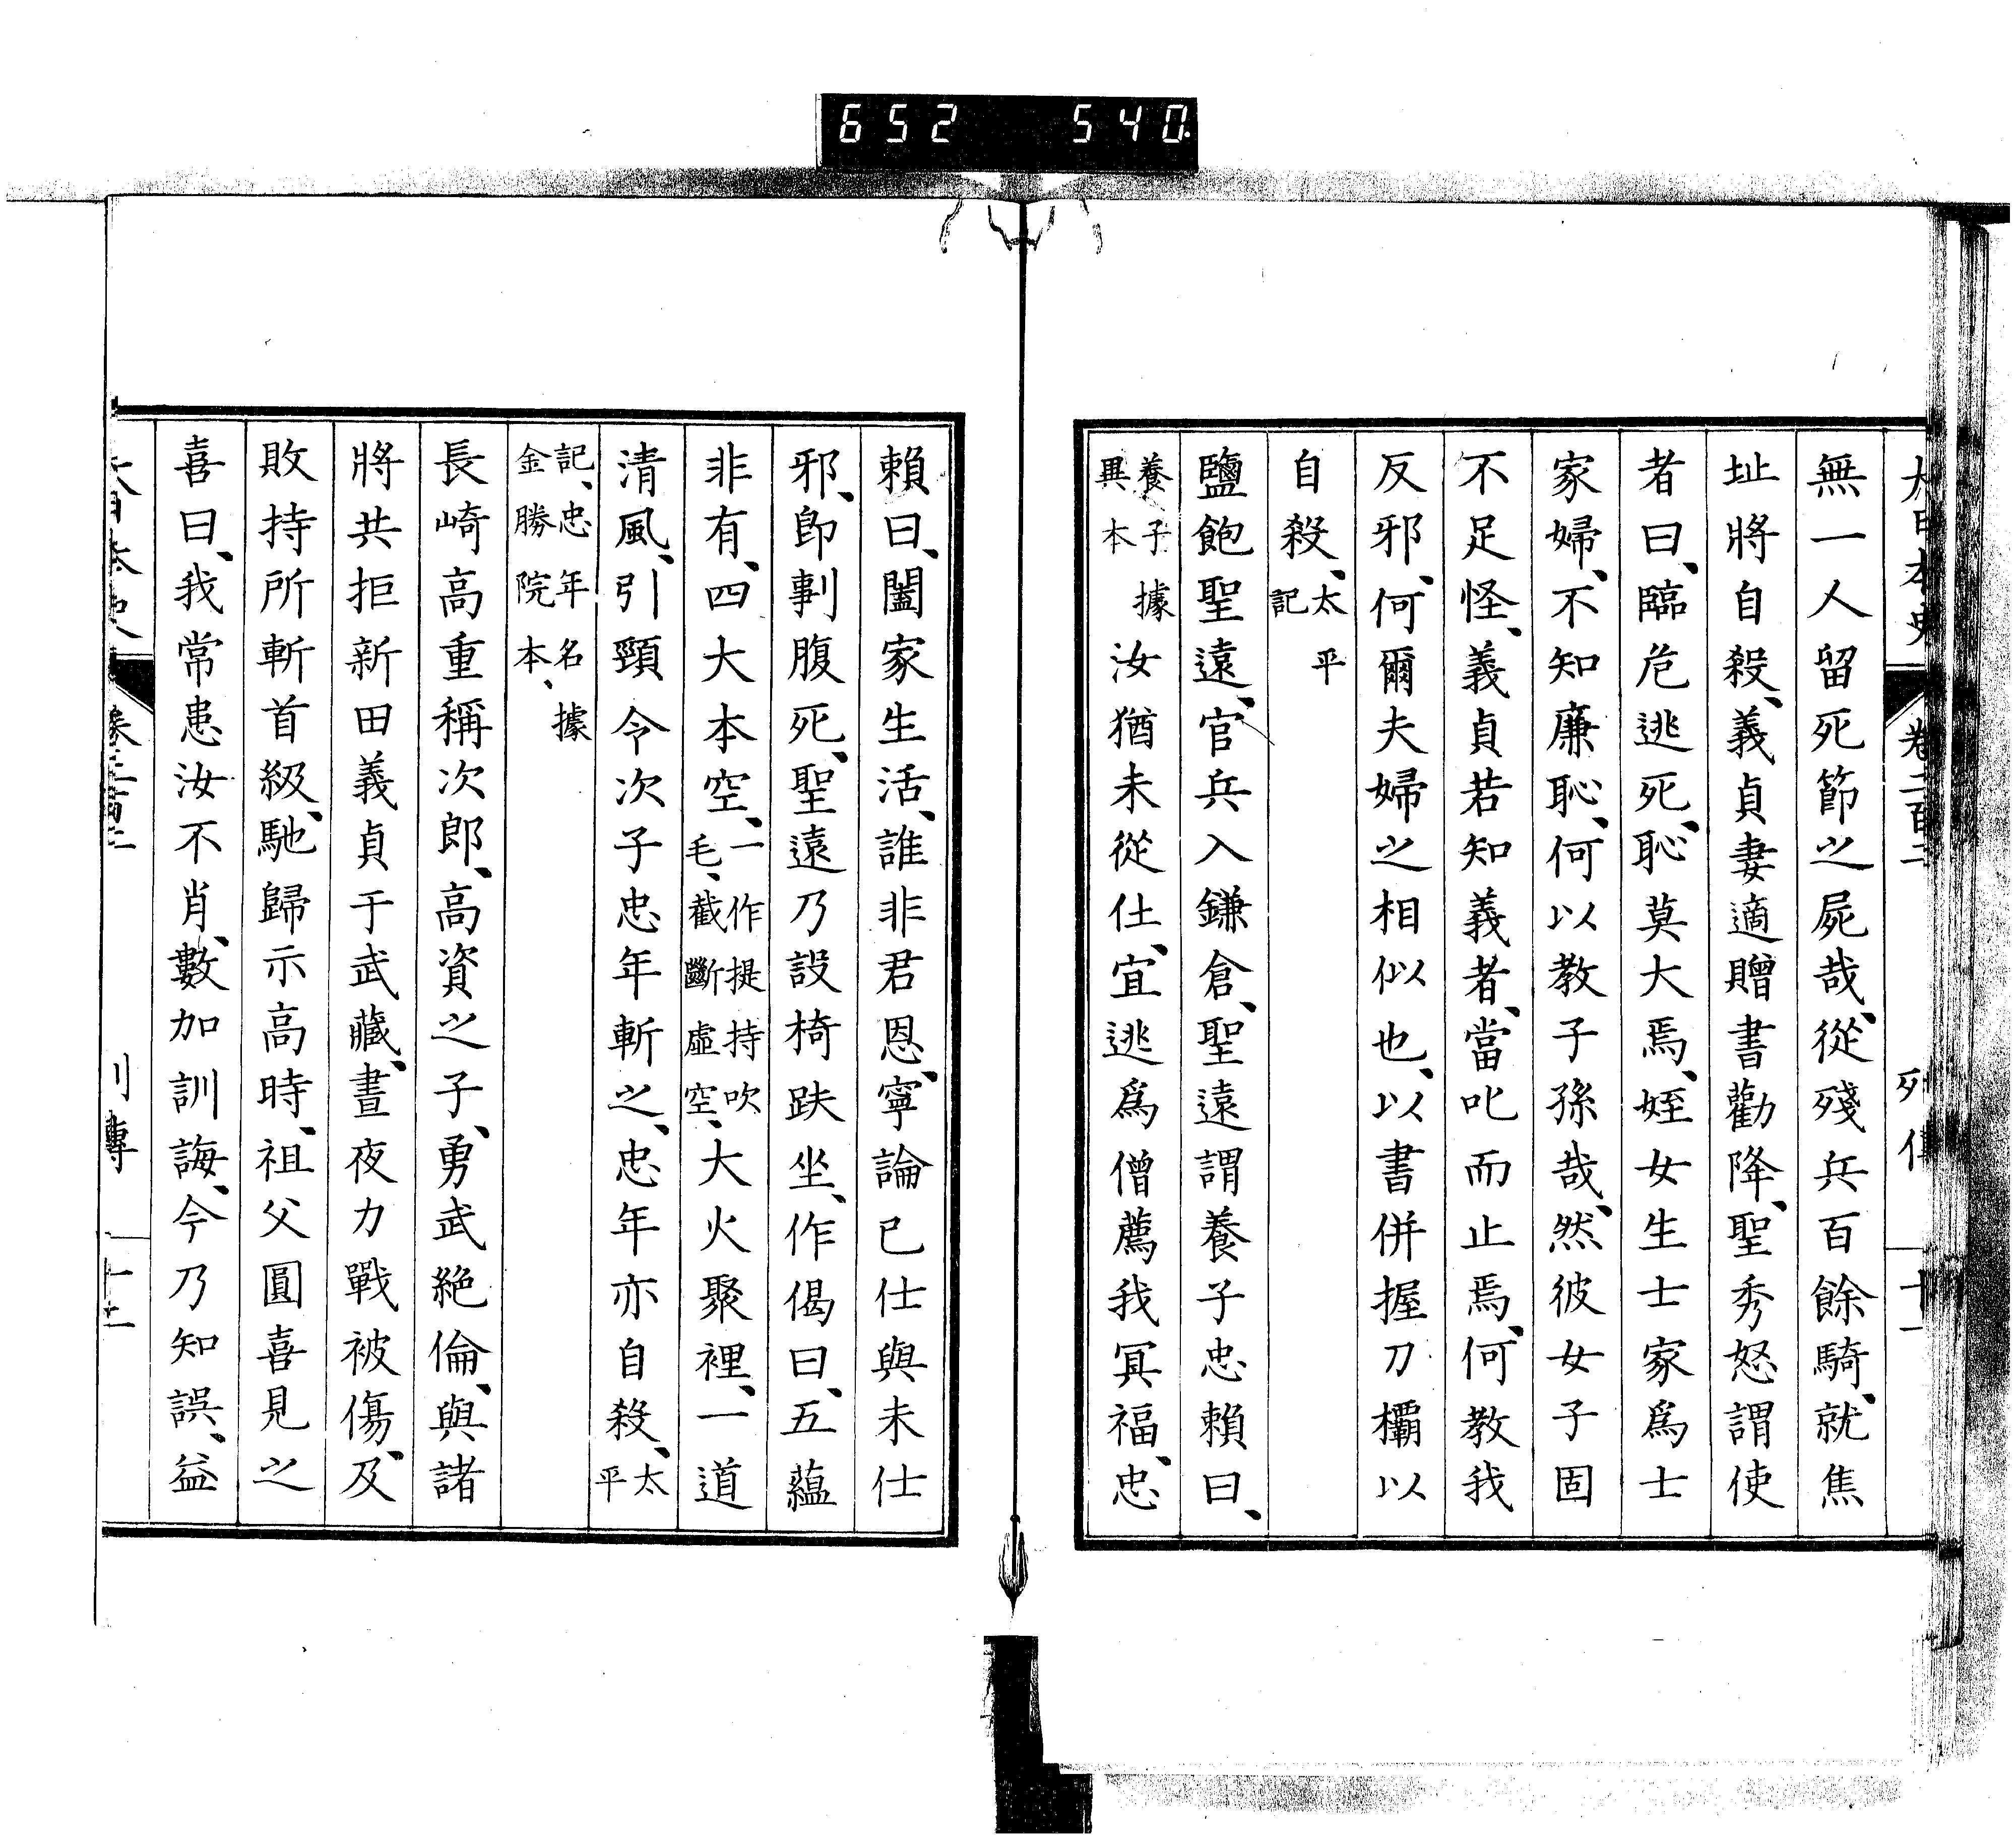 652 540
大日本史 卷二百二 列傳 十一
無一人留死節之屍哉、從殘兵百餘騎、就焦
址將自殺、義貞妻適贈書勸降、聖秀怒謂使
者曰、臨危逃死、恥莫大焉、姪女生士家爲士
家婦、不知廉恥、何以教子孫哉、然彼女子固
不足怪、義貞若知義者、當叱而止焉、何教我
反邪、何爾夫婦之相似也、以書併握刀欛以
自殺、太平記
鹽飽聖遠、官兵入鎌倉、聖遠謂養子忠賴曰、
養子據異本 汝猶未從仕、宜逃爲僧薦我冥福、忠
賴曰、闔家生活、誰非君恩、寧論已仕與未仕
邪、卽剚腹死、聖遠乃設椅趺坐、作偈曰、五蘊
非有、四大本空、一作提持吹毛、截斷虛空、大火聚裡、一道
清風、引頸令次子忠年斬之、忠年亦自殺、太平
記、忠年名據金勝院本、
長崎高重稱次郎、高資之子、勇武絶倫、與諸
將共拒新田義貞于武藏、晝夜力戰被傷、及
敗持所斬首級、馳歸示高時、祖父圓喜見之
喜曰、我常患汝不肖、數加訓誨、今乃知誤、益
大日本史 卷二百二 列傳 十二